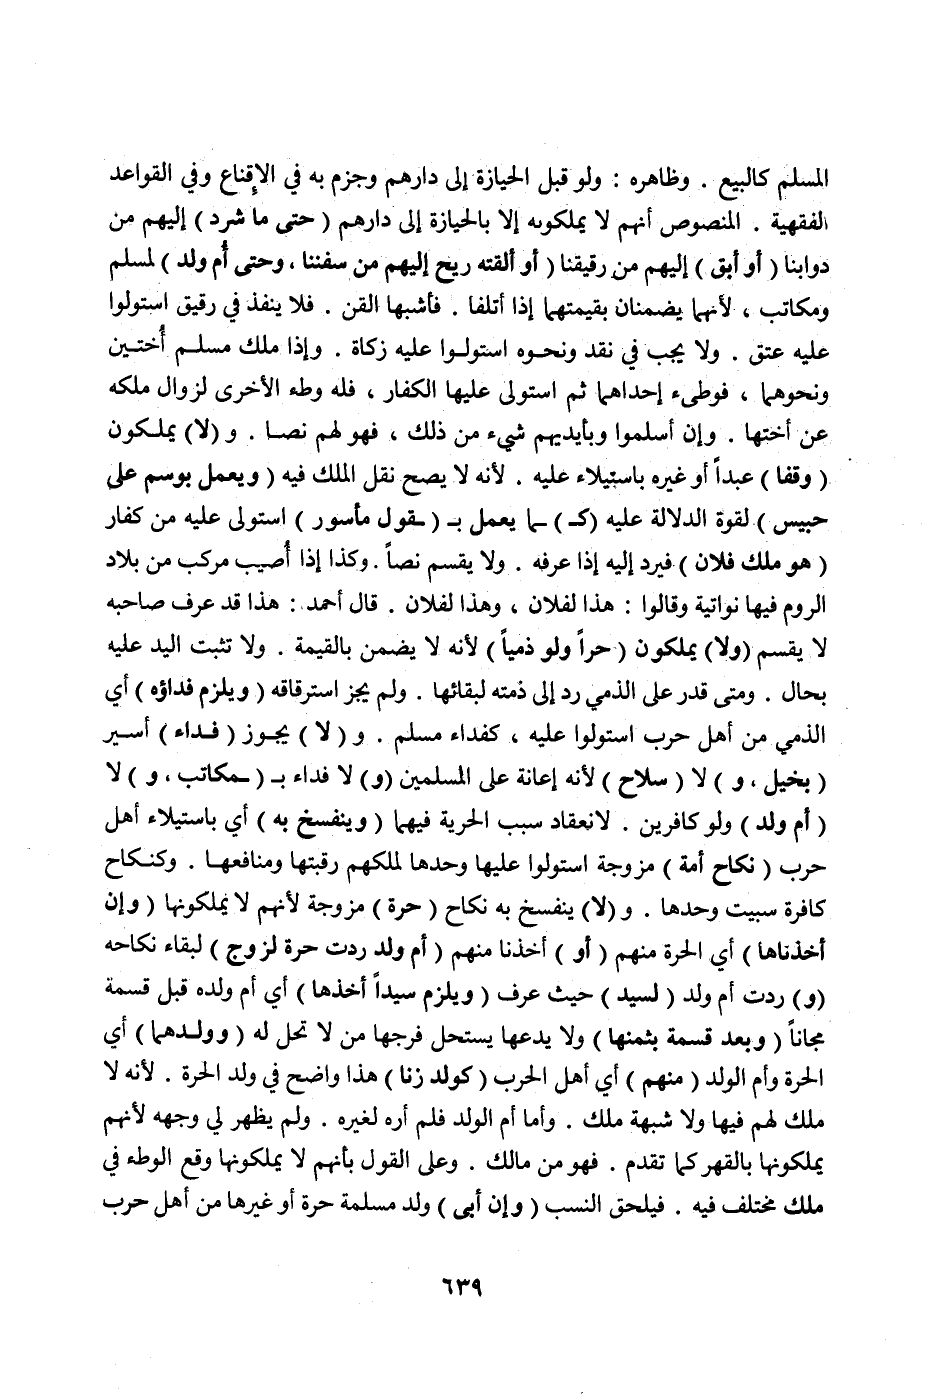 المسلم كالبيع . وظاهره : ولو قبل الحيازة إلى دارهم وجزم به في الإقناع وفي القواعد
الفقهية . المنصوص أنهم لا يملكونه إلا بالحيازة إلى دارهم ( حتى ما شرد ) إليهم من
دوابنا ( أو أبق ) إليهم من رقيقنا ( أو ألقته ريح إليهم من سفننا ، وحتى أم ولد ) لمسلم
ومكاتب ، لأنهما يضمنان بقيمتهما إذا أتلفا . فأشبها القن . فلا ينفذ في رقيق استولوا
عليه عتق . ولا يجب في نقد ونحوه استولوا عليه زكاة . وإذا ملك مسلم أُختين
ونحوهما ، فوطىء إحداهما ثم استولى عليها الكفار ، فله وطء الأخرى لزوال ملكه
عن أختها . وإن أسلموا وبأيديهم شيء من ذلك ، فهو لهم نصا . و (لا) يملكون
( وقفا ) عبداً أو غيره باستيلاء عليه . لأنه لا يصح نقل الملك فيه ( ويعمل بوسم على
حبيس ) لقوة الدلالة عليه (كـ) ـما يعمل بـ ( ـقول مأسور ) استولى عليه من كفار
( هو ملك فلان ) فيرد إليه إذا عرفه . ولا يقسم نصاً . وكذا إذا أُصيب مركب من بلاد
الروم فيها نواتية وقالوا : هذا لفلان ، وهذا لفلان . قال أحمد : هذا قد عرف صاحبه
لا يقسم (ولا) يملكون ( حراً ولو ذمياً ) لأنه لا يضمن بالقيمة . ولا تثبت اليد عليه
بحال . ومتى قدر على الذمي رد إلى ذمته لبقائها . ولم يجز استرقاقه ( ويلزم فداؤه ) أي
الذمي من أهل حرب استولوا عليه ، كفداء مسلم . و ( لا ) يجوز ( فداء ) أسير
( بخيل ، و ) لا ( سلاح ) لأنه إعانة على المسلمين (و) لا فداء بـ ( ـمكاتب ، و ) لا
( أم ولد ) ولو كافرين . لانعقاد سبب الحرية فيهما ( وينفسخ به ) أي باستيلاء أهل
حرب ( نكاح أمة ) مزوجة استولوا عليها وحدها لملكهم رقبتها ومنافعها . وكنكاح
كافرة سبيت وحدها . و (لا) ينفسخ به نكاح ( حرة ) مزوجة لأنهم لا يملكونها ( وإن
أخذناها ) أي الحرة منهم ( أو ) أخذنا منهم ( أم ولد ردت حرة لزوج ) لبقاء نكاحه
(و) ردت أم ولد ( لسيد ) حيث عرف ( ويلزم سيداً أخذها ) أي أم ولده قبل قسمة
مجاناً ( وبعد قسمة بثمنها ) ولا يدعها يستحل فرجها من لا تحل له ( وولدهما ) أي
الحرة وأم الولد ( منهم ) أي أهل الحرب ( كولد زنا ) هذا واضح في ولد الحرة . لأنه لا
ملك لهم فيها ولا شبهة ملك . وأما أم الولد فلم أره لغيره . ولم يظهر لي وجهه لأنهم
يملكونها بالقهر كما تقدم . فهو من مالك . وعلى القول بأنهم لا يملكونها وقع الوطء في
ملك مختلف فيه . فيلحق النسب ( وإن أبى ) ولد مسلمة حرة أو غيرها من أهل حرب
٦٣٩